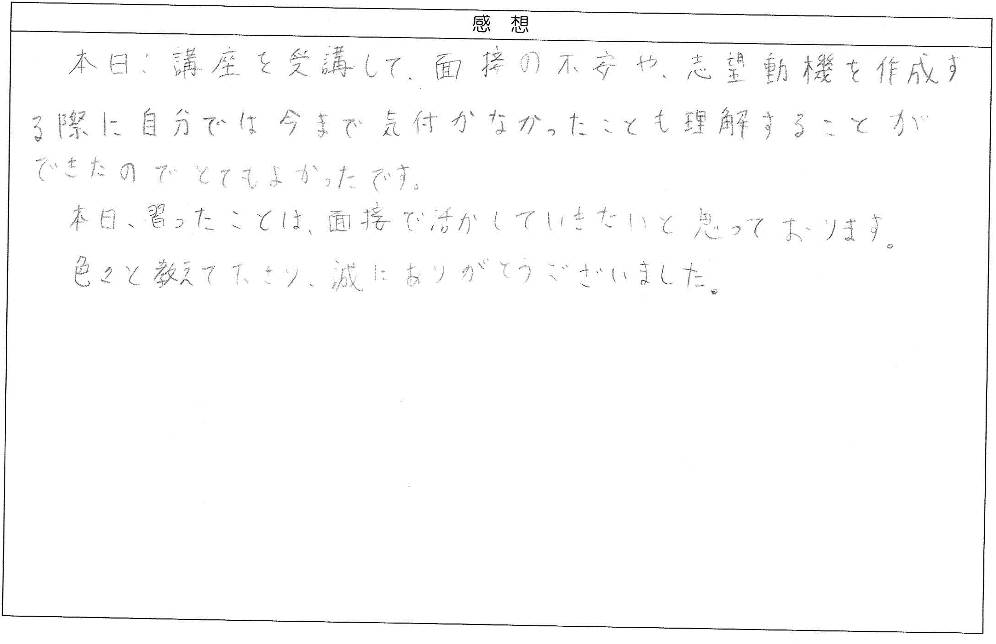 感想
本日、講座を受講して、面接の不安や、志望動機を作成す
る際に自分では今まで気付かなかったことも理解することが
できたのでとてもよかったです。
本日、習ったことは、面接で活かしていきたいと思っております。
色々と教えて下さり、誠にありがとうございました。